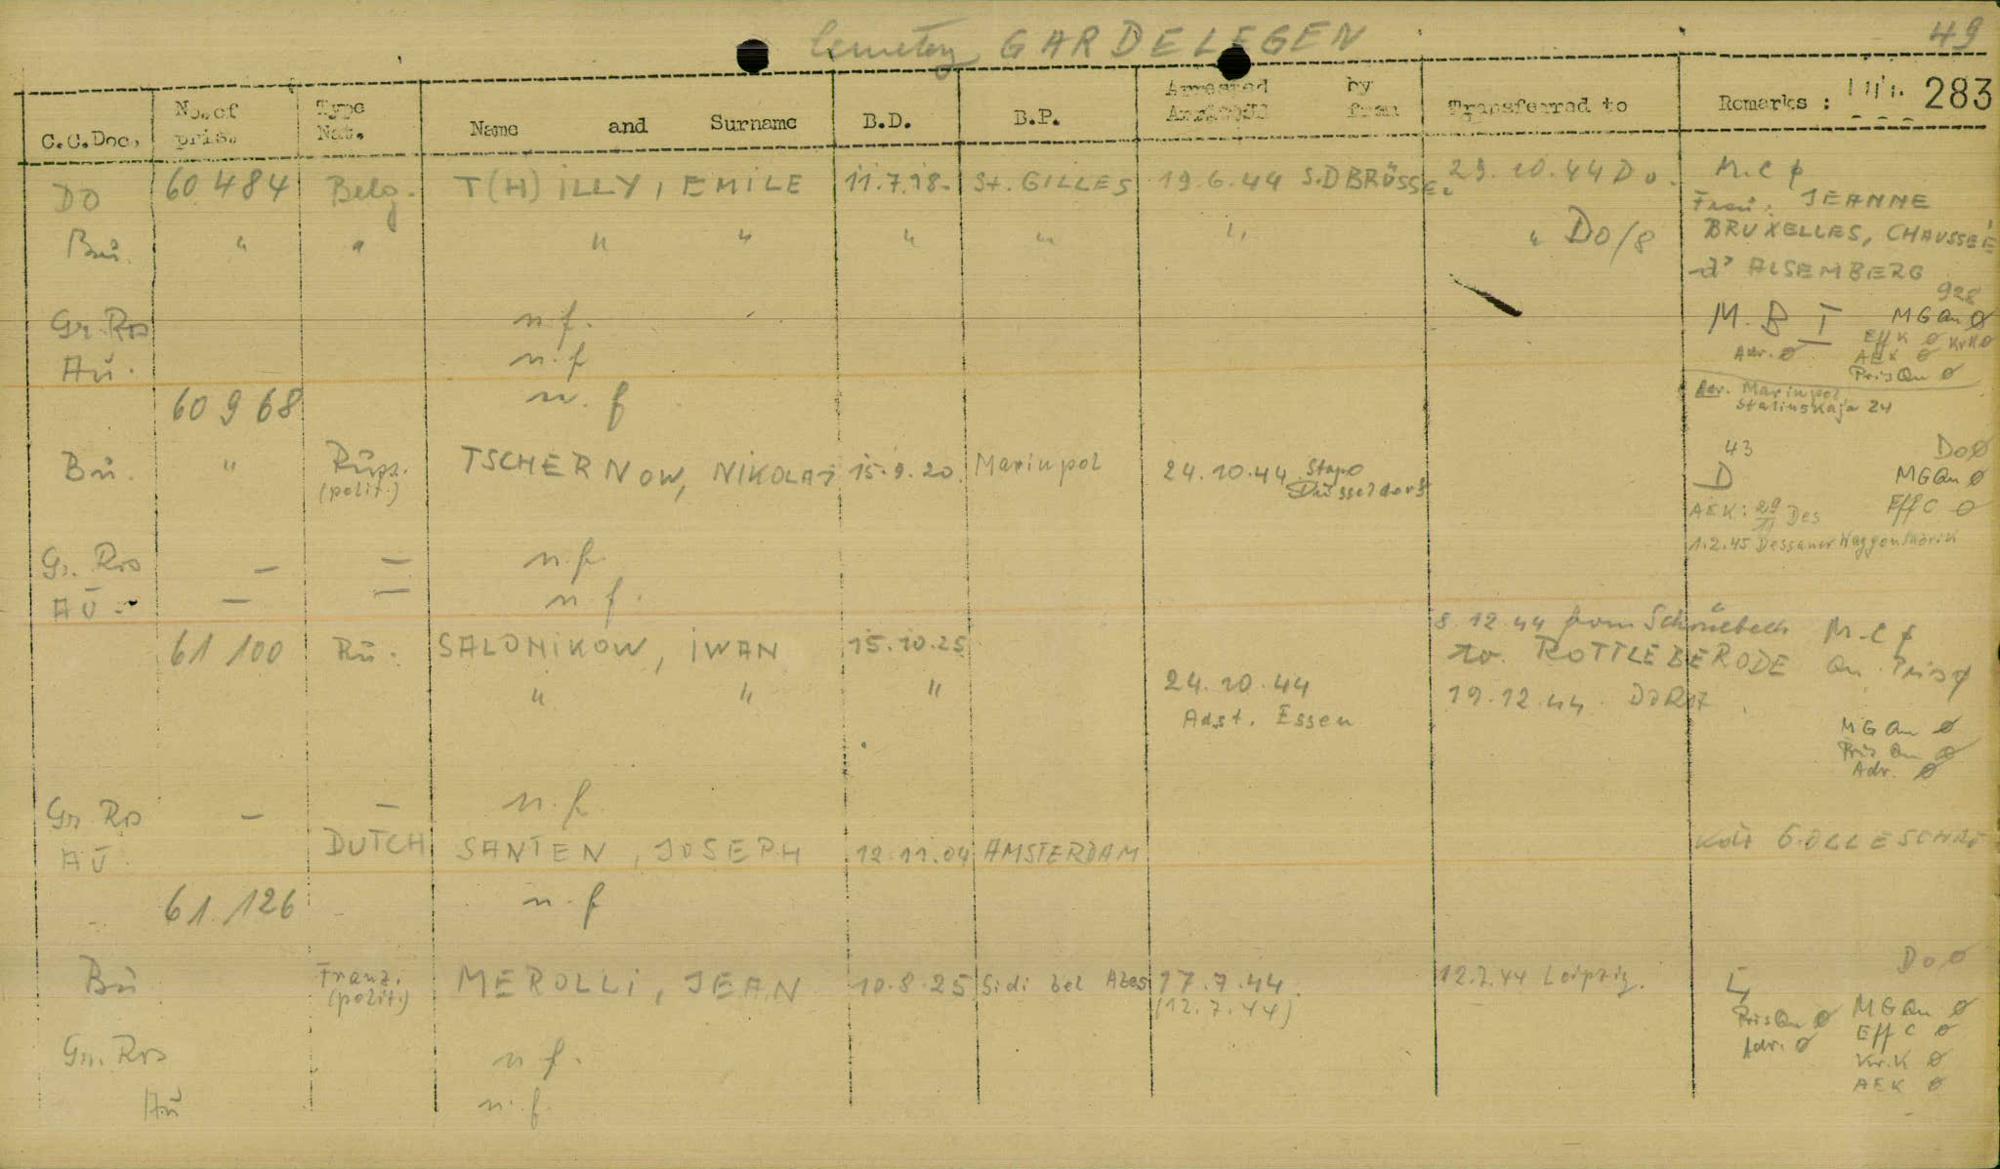 Cemetery GARDELEGEN 49
C.C.Doc. No. of pris. Type Nat. Name and Surname B.D. B.P. Arrested by Arrived from Transferred to Remarks : 283
DO 60 484 Belg. T(H)ILLY, EMILE 11.7.18. St. GILLES 19.6.44 S.D BRÜSSEL 29.10.44 Do. M.C ϕ
Frau: JEANNE
Bu. " " " " " " " " Do/8 BRUXELLES, CHAUSSEÉ
d' ALSEMBERG
928
Gr. Ros n.f. M. B I MGQu Ø
Eff K Ø KrK Ø
Au. n.f Adr. Ø AEK Ø
Pris Qu Ø
60 968 n.f Adr. Mariupol,
Stalinskaja 24
43 Do Ø
Bu. " Russ. TSCHERNOW, NIKOLAJ 15.9.20. Mariupol 24.10.44 Stapo D MGQu Ø
(polit.) Düsseldorf
AEK: 29/11 Des Eff C Ø
1.2.45 Dessauer Waggonfabrik
Gr. Ros — — n.f.
AU. — — n f.
8.12.44 from Schönebeck M.C ϕ
61 100 Ru. SALONIKOW, IWAN 15.10.25 to ROTTLEBERODE Qu. Pris ϕ
" " " 24.10.44 19.12.44 DORA
Adst. Essen
MG Qu Ø
Pris Qu Ø
Adr. Ø
Gr Ro — — n.f.
AU. DUTCH SANTEN, JOSEPH 12.11.04 AMSTERDAM Kdo GOLLESCHAU
61.126 n.f
Do Ø
Bu Franz. MEROLLI, JEAN 10.8.25 Sidi bel Abes 17.7.44. 12.7.44 Leipzig. L
(polit.) (12.7.44)
Pris Qu Ø MGQu Ø
Eff C Ø
Adr. Ø
Gr. Ros n f. Kr.K Ø
AEK Ø
Au n.f.